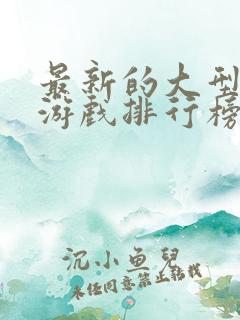 最新的大型
游戏排行榜
沉小鱼儿
未经同意禁止转载